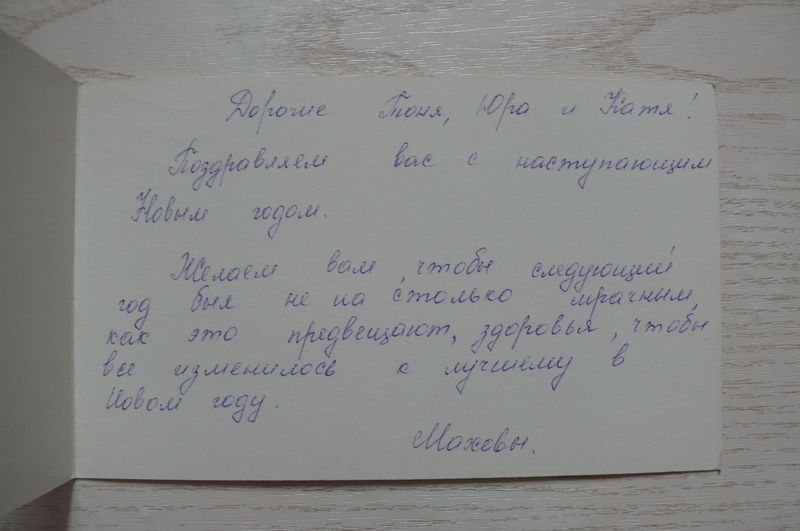 Дорогие Тоня, Юра и Катя!
Поздравляем вас с наступающим
Новым годом.
Желаем вам, чтобы следующий
год был не на столько мрачным,
как это предвещают, здоровья, чтобы
все изменилось к лучшему в
Новом году.
Маховы.